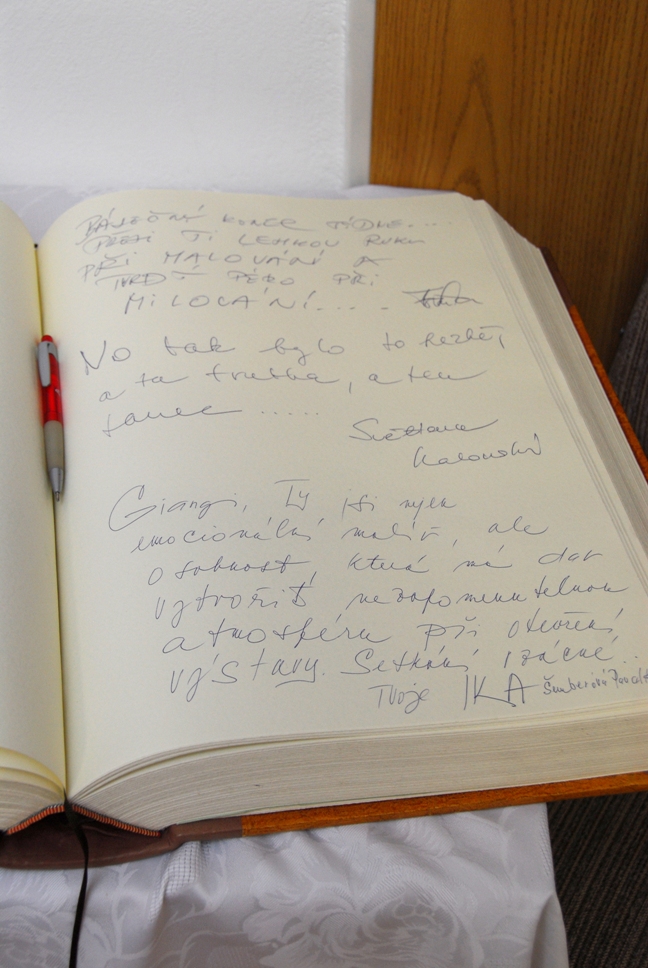 BÁJEČNÝ KONEC TÝDNE....
PŘEJI TI LEHKOU RUKU
PŘI MALOVÁNÍ A
TVRDÉ PÉRO PŘI
MILOVÁNÍ....
No tak bylo to hezké,
a ta trubka, a ten
tanec .....
Světlana
Giangi, Ty jsi nejen
emocionální malíř, ale
osobnost, která má dar
vytvořit nezapomenutelnou
atmosféru při otevření
výstavy. Setkání vzácné...
Tvoje IKA